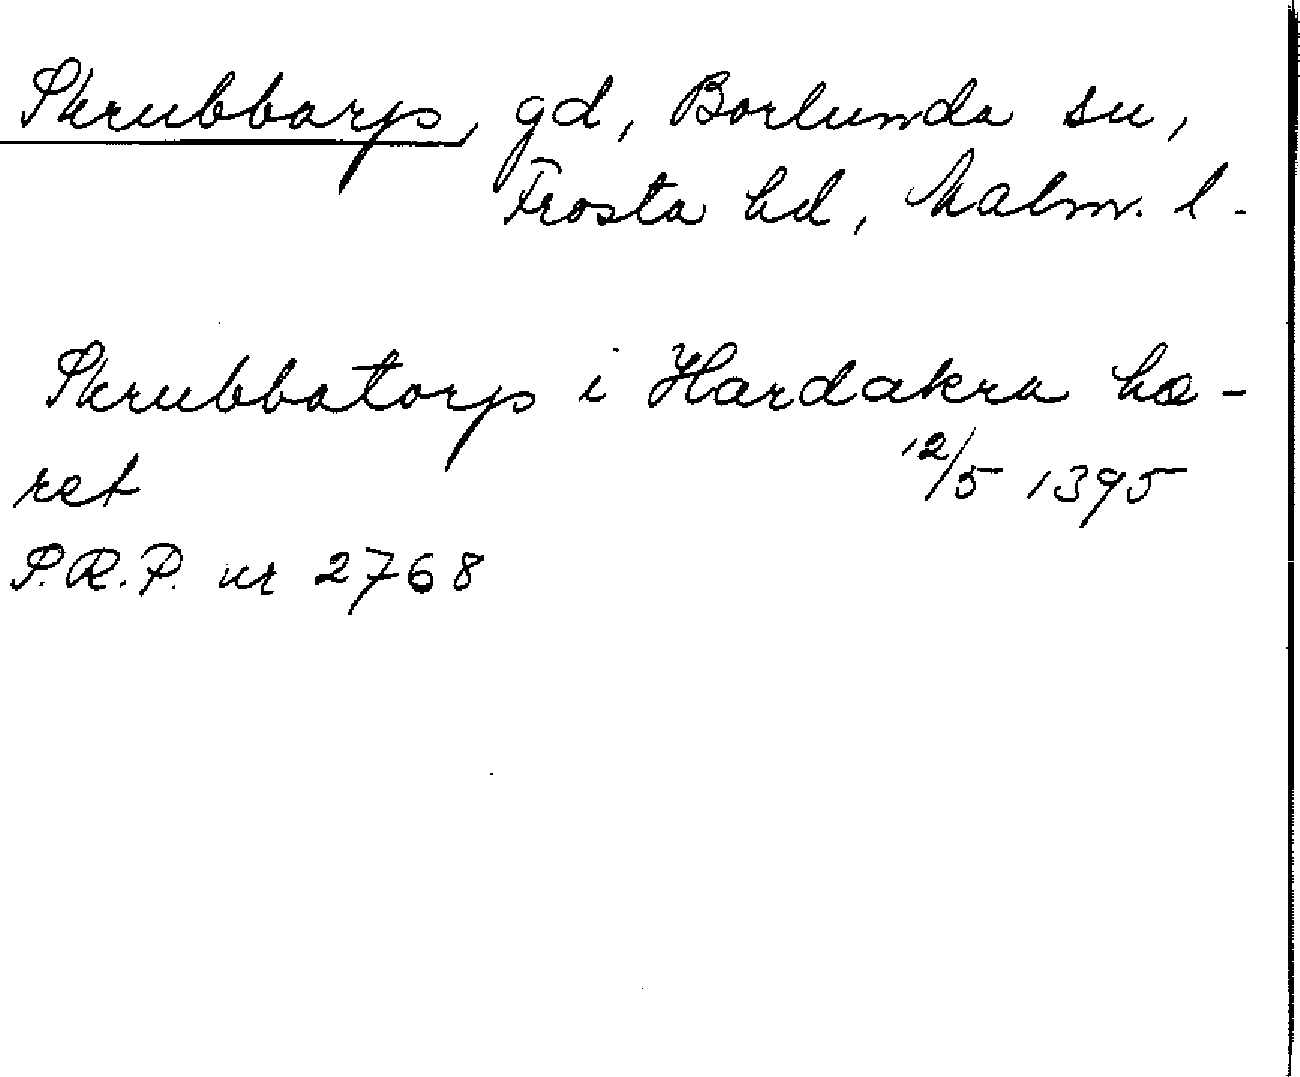 Skrubbarp, gd, Borlunda sn,
Frosta hd, Malm. l.
Skrubbatorp i Hardakra hæ-
ret 12/5 1395
P.R.P. nr 2768